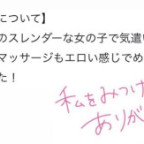 について】
のスレンダーな女の子で気遣い
マッサージもエロい感じでめ
た！
私をみつけ
ありが